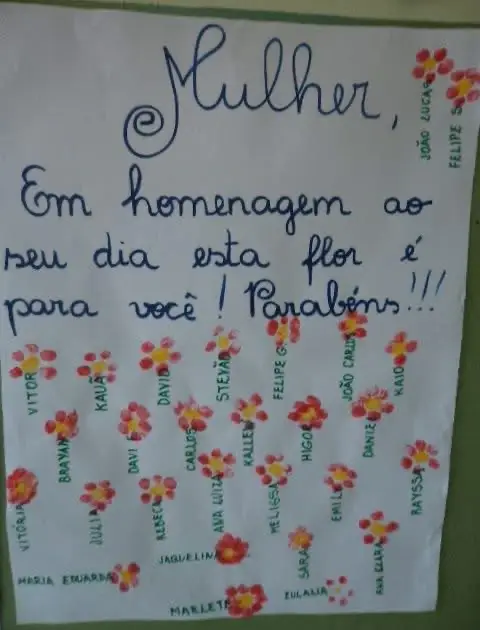 Mulher,
JOÃO LUCAS
FELIPE S.
Em homenagem ao
seu dia esta flor é
para você! Parabéns!!!
VITOR
KAUÃ
DAVID
STEVÃO
FELIPE G.
JOÃO CARLOS
KAIO
BRAYAN
DAVI
CARLOS
KALLEL
HIGOR
DANIEL
VITÓRIA
JULIA
REBECA
ANA LUIZA
MELISSA
EMILY
RAYSSA
JAQUELINE
SARA
ANA CLARA
MARIA EDUARDA
MARLETE
EULALIA